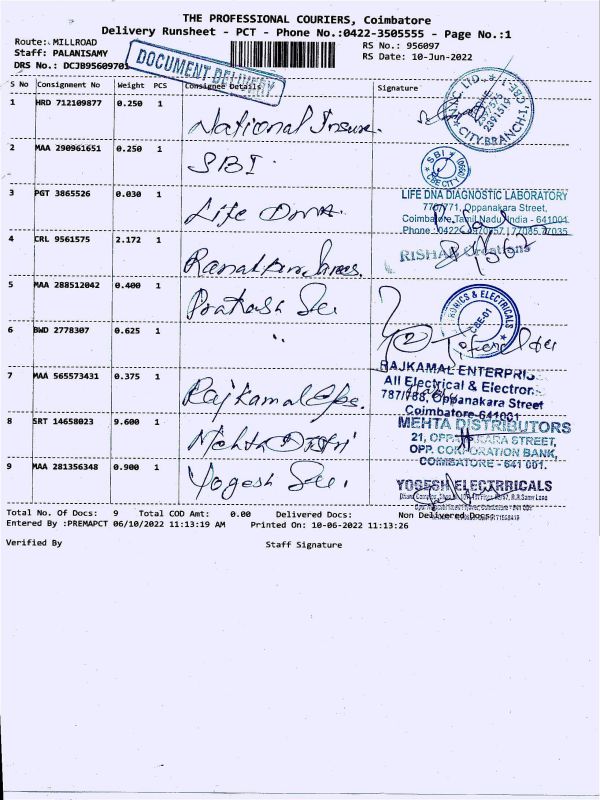 THE PROFESSIONAL COURIERS, Coimbatore
Delivery Runsheet - PCT - Phone No.:0422-3505555 - Page No.:1
Route:. MILLROAD
RS No.: 956097
Staff: PALANISAMY
RS Date: 10-Jun-2022
DRS No.: DCJB95609701
DOCUMENT DELIVERY
S No Consignment No Weight PCS Consignee Details Signature
1 HRD 712109877 0.250 1 National Insure.
CITY.BRANCH-I,
2 MAA 290961651 0.250 1 SBI
SBI
3 PGT 3865526 0.030 1 Life DNA.
LIFE DNA DIAGNOSTIC LABORATORY
770/771, Oppanakara Street,
Coimbatore, Tamil Nadu, India - 641001
Phone : 0422
4 CRL 9561575 2.172 1
RISHA Creations
5 MAA 288512042 0.400 1 Prakash
& ELECTRICALS
CBE-01
6 BWD 2778307 0.625 1 "
7 MAA 565573431 0.375 1 Rajkamal
RAJKAMAL ENTERPRIS
All Electrical & Electron
787/788, Oppanakara Street
Coimbatore-641001
8 SRT 14658023 9.600 1 Mehta Distri
MEHTA DISTRIBUTORS
21, OPPANAKARA STREET,
OPP. CORPORATION BANK,
COIMBATORE - 641 001.
9 MAA 281356348 0.900 1 Yogesh
YOGESH ELECTRRICALS
Total No. Of Docs: 9 Total COD Amt: 0.00 Delivered Docs: Non Delivered Docs:
Entered By :PREMAPCT 06/10/2022 11:13:19 AM Printed On: 10-06-2022 11:13:26
Verified By Staff Signature